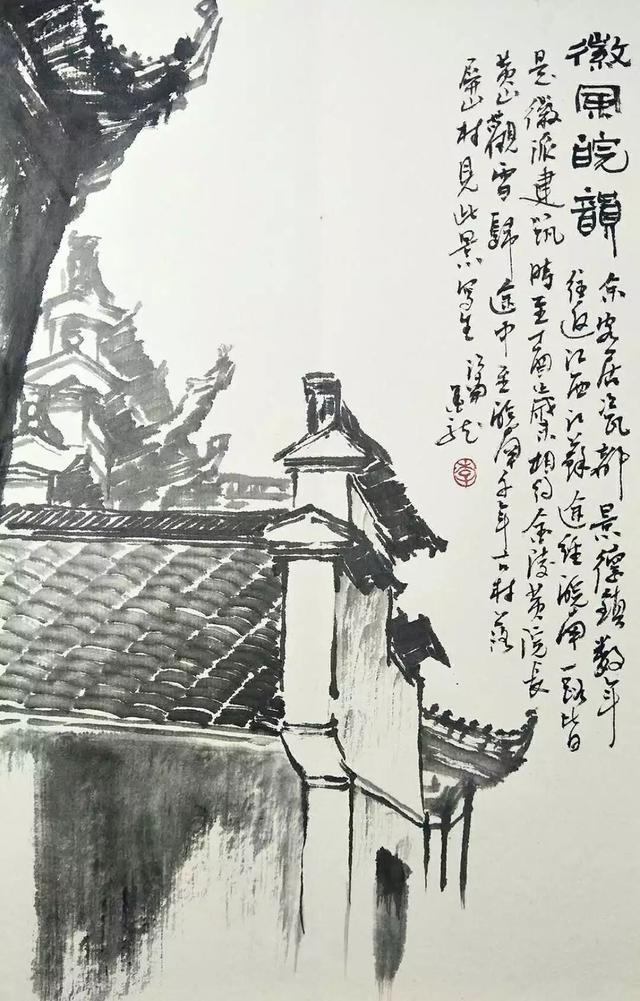 徽風皖韻
余客居瓷都景德鎮數年
往返江西江蘇途經皖南一路皆
是徽派建筑時至丁酉歲末相約金陵黄院長
黄山觀雪歸途中至皖南千年古村落
屏山村見此景寫生
李